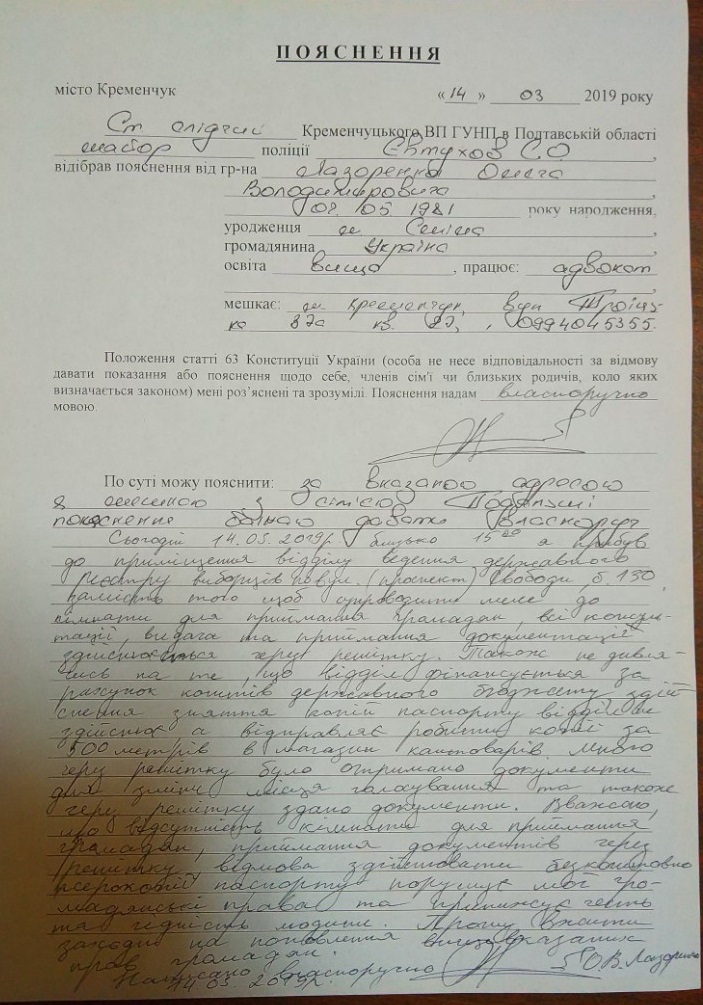 ПОЯСНЕННЯ
місто Кременчук « 14 » 03 2019 року
Ст слідчий Кременчуцького ВП ГУНП в Полтавській області
майор поліції Євтухов С.О ,
відібрав пояснення від гр-на Лазоренка Олега
Володимировича ,
08. 05 1981 року народження,
уродженця м. Семіпа ,
громадянина Україна ,
освіта вища , працює: адвокат
мешкає: м. Кременчук, вул Троїць-
ка 87а кв. , 0994045355.
Положення статті 63 Конституції України (особа не несе відповідальності за відмову
давати показання або пояснення щодо себе, членів сім'ї чи близьких родичів, коло яких
визначається законом) мені роз'яснені та зрозумілі. Пояснення надам власноручно
мовою.
По суті можу пояснити: за вказаною адресою
я мешкаю з сім'єю
пояснення бажаю давати власноруч
Сьогодні 14.03.2019р. близько 15 00 я прибув
до приміщення відділу ведення державного
реєстру виборців по вул. (проспект) Свободи б. 130,
замість того щоб супроводити мене до
кімнати для приймання громадян, всі консуль-
тації, видача та приймання документації
здійснюється через решітку. Також не дивля-
чись на те, що відділ фінансується за
рахунок коштів державного бюджету здій
снення зняття копій паспорту відділ не
здійснює а відправляє робити копії за
500 метрів в магазин канцтоварів. Мною
через решітку було отримано документи
для зміни місця голосування та також
через решітку здано документи. Вважаю,
що відсутність кімнати для приймання
громадян, приймання документів через
решітку, відмова здійснювати безкоштовно
ксерокопії паспорту порушує мої гро-
мадянські права та принижує честь
та гідність людини. Прошу вжити
заходи на поновлення вищевказаних
прав громадян.
Написано власноручно О.В. Лазоренко
14.03.2019р.